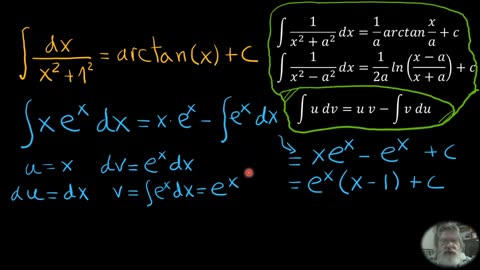 ∫ dx/(x²+1²) = arctan(x)+C
∫ 1/(x² + a²) dx = 1/a arctan x/a + c
∫ 1/(x² − a²) dx = 1/2a ln((x − a)/(x + a)) + c
∫ u dv = u v − ∫ v du
∫ x eˣ dx = x · eˣ − ∫ eˣ dx
u = x dv = eˣ dx
du = dx v = ∫ eˣ dx = eˣ
= xeˣ − eˣ + C
= eˣ (x − 1) + C